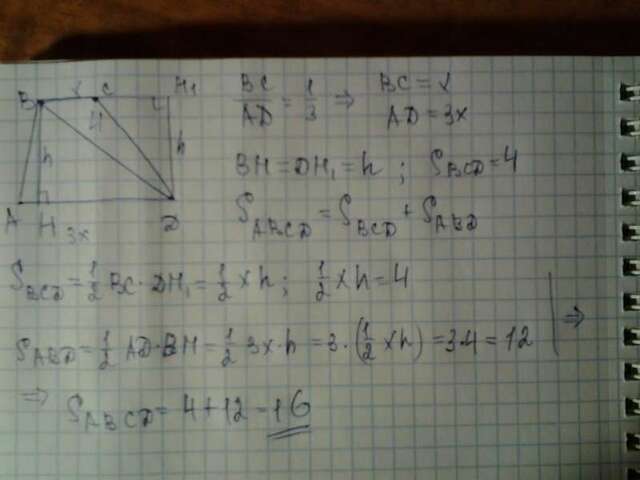 B x C H₁
4 h h
A H 3x D
BC/AD = 1/3 ⇒ BC = x
AD = 3x
BH = DH₁ = h ; S_BCD = 4
S_ABCD = S_BCD + S_ABD
S_BCD = 1/2 BC · DH₁ = 1/2 x h ; 1/2 x h = 4
S_ABD = 1/2 AD · BH = 1/2 3x · h = 3 · (1/2 x h) = 3·4 = 12 ⇒
⇒ S_ABCD = 4 + 12 = 16